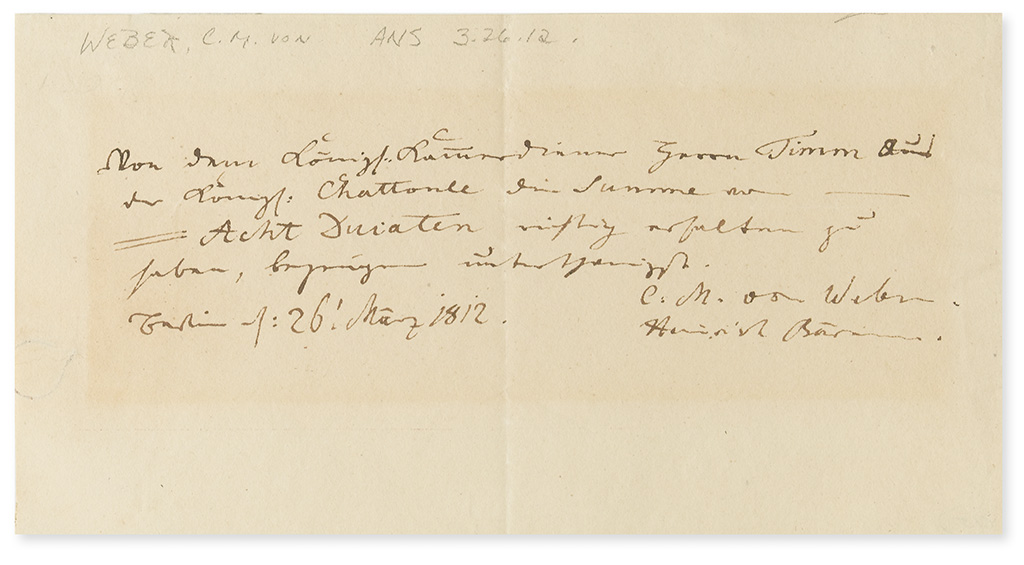 WEBER, C. M. VON ANS 3.26.12.
Von dem Königl: Kam̄erdiener Herrn Timm aus
der Königl: Chattoulle die Summe von
Acht Ducaten richtig erhalten zu
haben, bezeugen unterthänigst.
C. M. von Weber.
Berlin d: 26t März 1812.
Heinrich Bärmann.